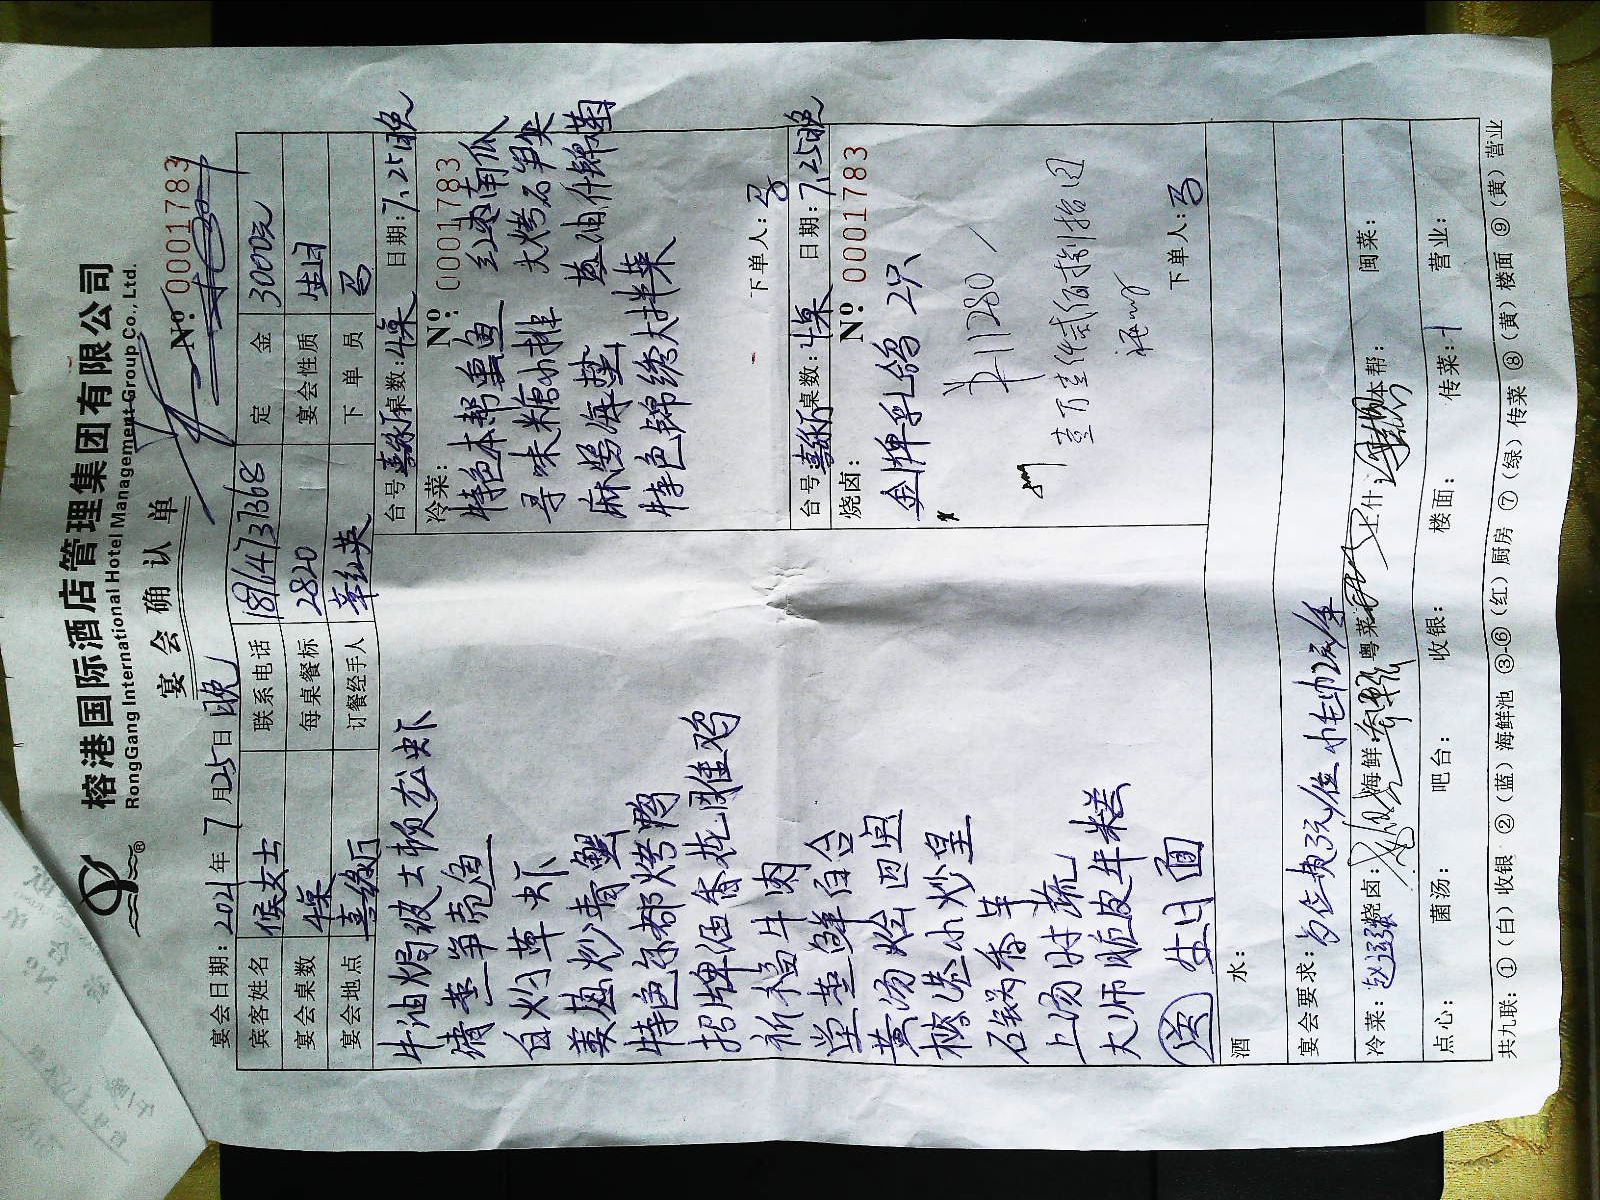 榕港国际酒店管理集团有限公司
RongGang International Hotel Management Group Co., Ltd.
宴会确认单
№: 0001783
宴会日期: 2021年7月25日晚
宾客姓名 侯女士 联系电话 1814731368 定金 3000元
宴会桌数 4桌 每桌餐标 2820 宴会性质 生日
宴会地点 喜缘厅 订餐经手人 章红英 下单员
台号 喜缘厅 桌数: 4桌 日期: 7.25晚
冷菜: № 0001783
特色本帮熏鱼 红枣南瓜
寻味糖小排 大烤石笋尖
麻酱海蜇 葱油什锦菌
特色锦绣大拌菜
下单人:
台号 喜缘厅 桌数: 4桌 日期: 7.25晚
烧卤: № 0001783
金牌乳鸽 2只
¥11280
壹万壹仟贰佰捌拾圆
下单人:
牛油焗波士顿龙虾
清蒸笋壳鱼
白灼草虾
姜葱炒青蟹
特色京都烤鸭
招牌酒香花雕鸡
祈福牛肉
堂蒸鲜百合
黄汤烩四宝
榕港小炒皇
石锅香芋
上汤时蔬
大师脆皮年糕
送 生日面
酒水:
宴会要求: 每位热3元/位 小毛巾2元/条
冷菜: 烧卤: 海鲜: 粤菜: 上什: 本帮: 闽菜:
点心: 菌汤: 吧台: 收银: 楼面: 传菜: 营业:
共九联: ①(白)收银 ②(蓝)海鲜池 ③-⑥(红)厨房 ⑦(绿)传菜 ⑧(黄)楼面 ⑨(黄)营业